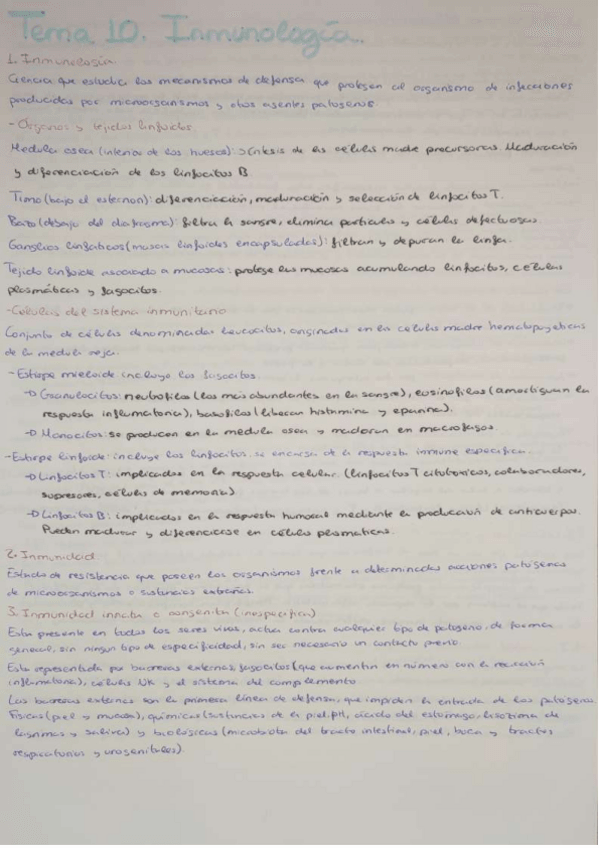 Tema 10. Inmunología.
1. Inmunología
Ciencia que estudia los mecanismos de defensa que protegen al organismo de infecciones
producidas por microorganismos y otros agentes patógenos.
- Órganos y tejidos linfoides.
Medula osea (interior de los huesos): síntesis de las células madre precursoras. Maduración
y diferenciación de los linfocitos B.
Timo (bajo el esternon): diferenciación, maduración y selección de linfocitos T.
Bazo (debajo del diafragma): filtra la sangre, elimina particulas y células defectuosas.
Ganglios linfaticos (masas linfoides encapsuladas): filtran y depuran la linfa.
Tejido linfoide asociado a mucosas: protege las mucosas acumulando linfocitos, células
plasmáticas y fagocitos.
- Células del sistema inmunitario
Conjunto de células denominadas leucocitos, originadas en las celulas madre hematopoyeticas
de la medula roja.
- Estirpe mieloide incluye los fagocitos.
→ Granulocitos: neutrofilos (los mas abundantes en la sangre), eosinofilos (amortiguan la
respuesta inflamatoria), basofilos (liberan histamina y eparina).
→ Monocitos: se producen en la medula osea y maduran en macrofagos.
- Estirpe linfoide: incluye los linfocitos, se encarga de la respuesta inmune especifica.
→ Linfocitos T: implicados en la respuesta celular. (linfocitos T citotoxicos, colaboradores,
supresores, células de memoria)
→ Linfocitos B: implicados en la respuesta humoral mediante la producción de anticuerpos.
Pueden madurar y diferenciarse en células plasmaticas.
2. Inmunidad
Estado de resistencia que poseen los organismos frente a determinadas acciones patógenas
de microorganismos o sustancias extrañas.
3. Inmunidad innata o congenita (inespecifica)
Esta presente en todos los seres vivos, actua contra cualquier tipo de patogeno, de forma
general, sin ningun tipo de especificidad, sin ser necesario un contacto previo.
Esta representada por barreras externas, fagocitos (que aumentan en número con la reacción
inflamatoria), células NK y el sistema del complemento.
Las barreras externas son la primera linea de defensa, que impiden la entrada de los patógenos
Fisicas (piel y mucosas), químicas (sustancias de la piel, pH, ácido del estomago, lisozima de
lagrimas y saliva) y biológicas (microbiota del tracto intestinal, piel, boca y tractos
respiratorios y urogenitales).